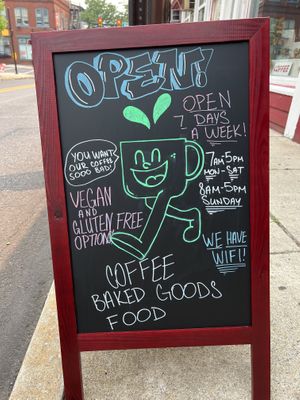 OPEN!
OPEN
7 DAYS
A WEEK!
YOU WANT
OUR COFFEE
SOOO BAD!
7AM-5PM
MON-SAT
8AM-5PM
SUNDAY
VEGAN
AND
GLUTEN FREE
OPTIONS
WE HAVE
WIFI!
COFFEE
BAKED GOODS
FOOD